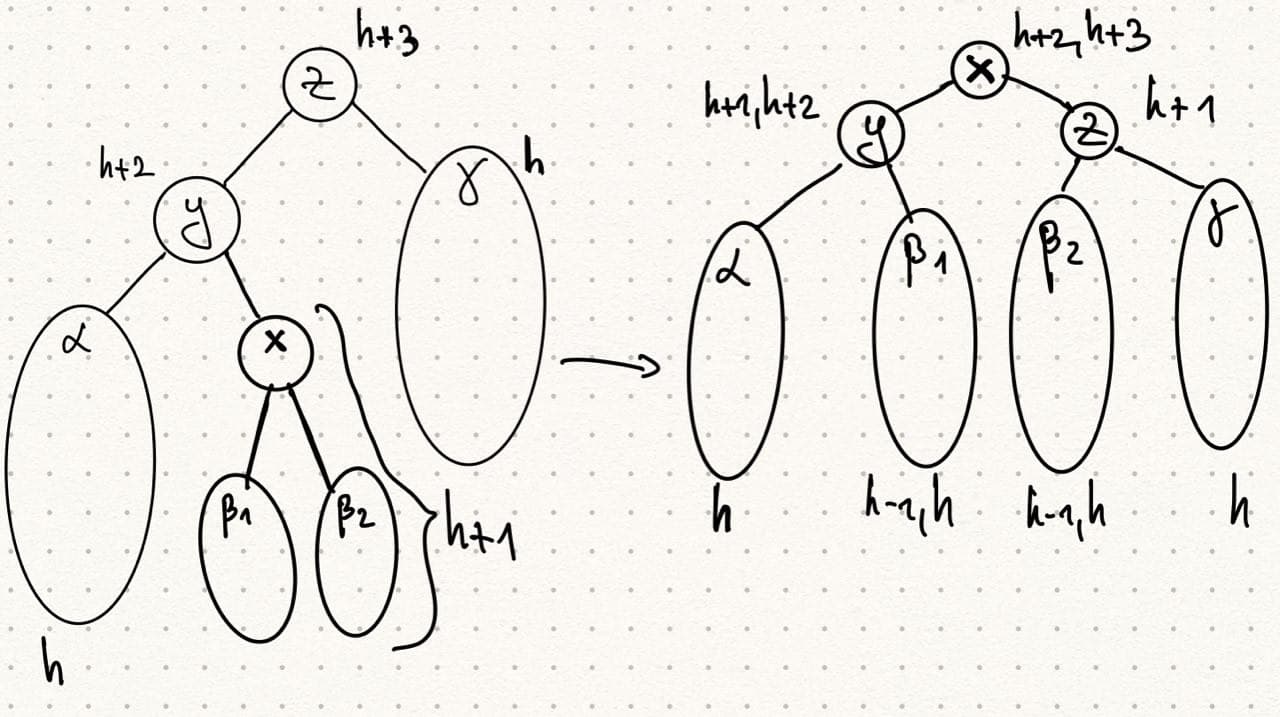 h+3
z
h+2
y
γ
h
α
x
β1
β2
h+1
h
h+2,h+3
x
h+1,h+2
y
z
h+1
α
β1
β2
γ
h
h-1,h
h-1,h
h